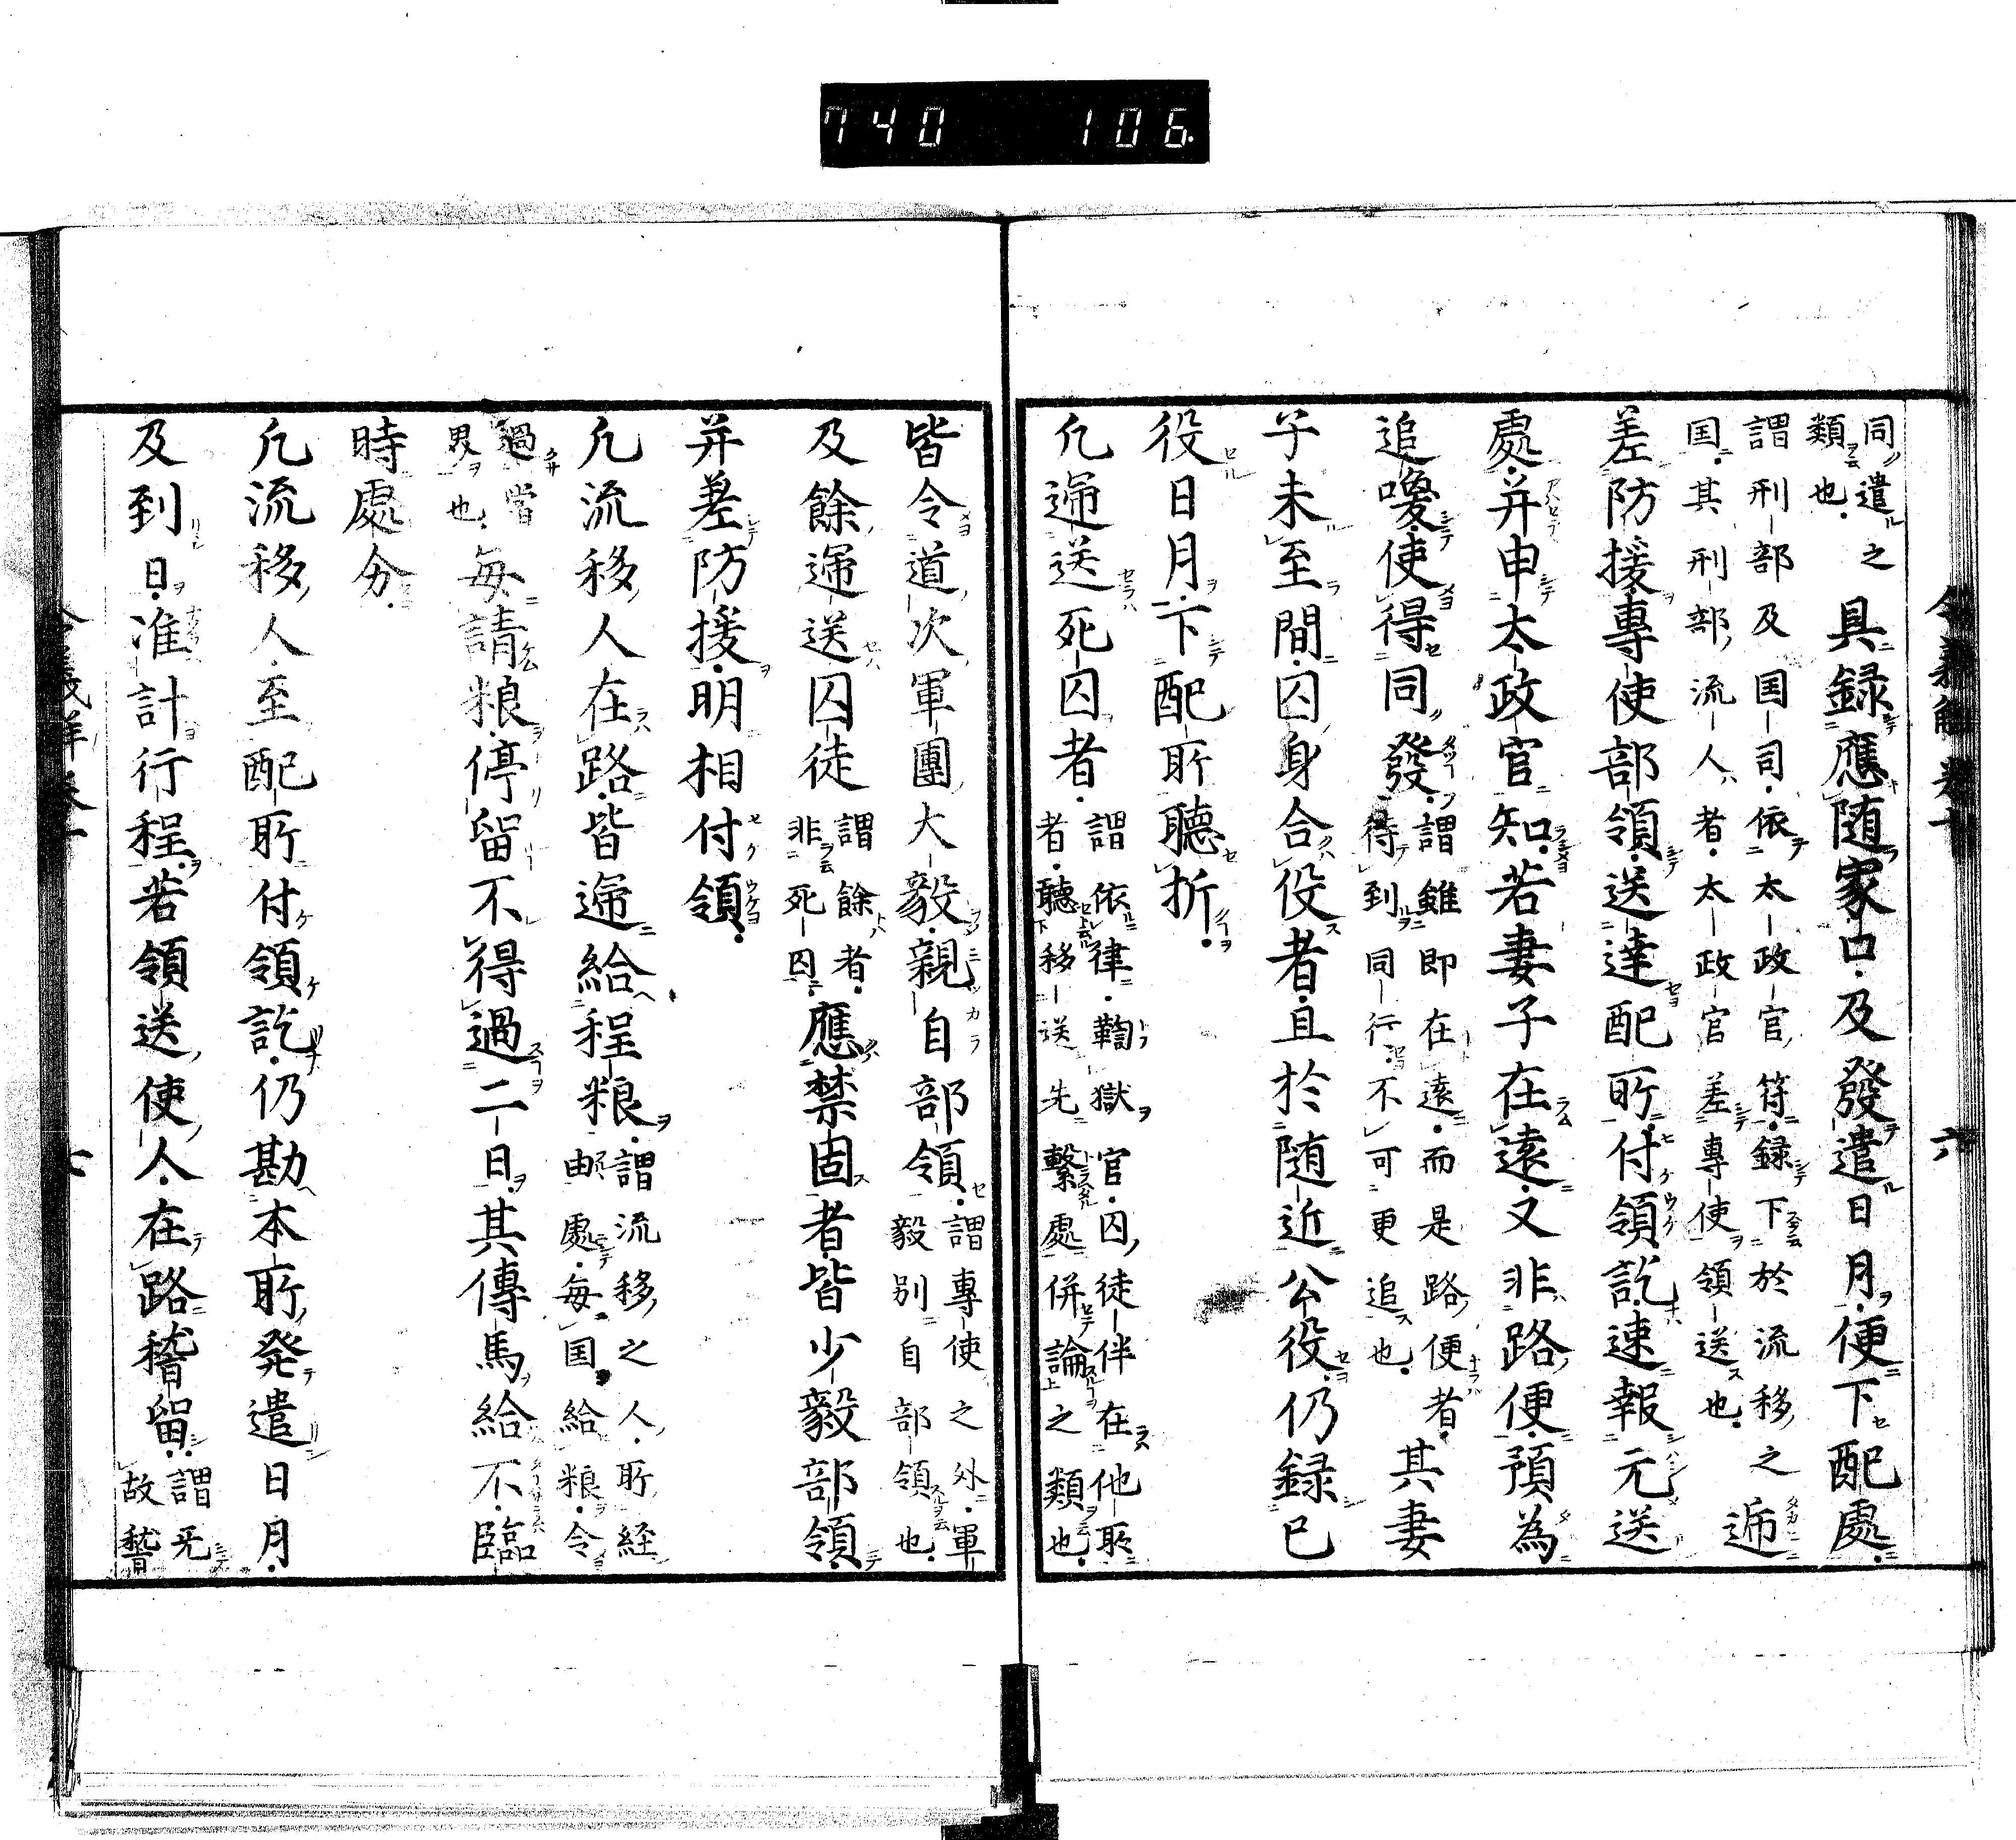 740 106
同遣之
類也。具録應随家口。及發遣日月。便下配處。
謂刑部及国司。依太政官符。録下於流移之
国。其刑部流人者。太政官差專使領送也。逓
差防援。專使部領。送達配所。付領訖。速報元送
處。并申太政官知。若妻子在遠。又非路便。預為
追喚。使得同發。謂雖即在遠。而是路便者。
待到同行。不可更追也。其妻
子未至間。囚身合役者。且於随近公役。仍録已
役日月。下配所聽折。
凡逓送死囚者。謂依律。鞫獄官。囚徒伴在他所
者。聽移送先繫處併論之類也。
皆令道次軍團大毅。親自部領。謂專使之外。軍
毅別自部領也。
及餘逓送囚徒謂餘者。
非死囚。應禁固者。皆少毅部領。
并差防援。明相付領。
凡流移人在路。皆逓給程粮。謂流移之人。所経
由處。毎国給粮。令
過當
界也。毎請粮。停留不得過二日。其傳馬給不。臨
時處分。
凡流移人。至配所付領訖。仍勘本所發遣日月。
及到日。准計行程。若領送使人。在路稽留。謂无
故稽